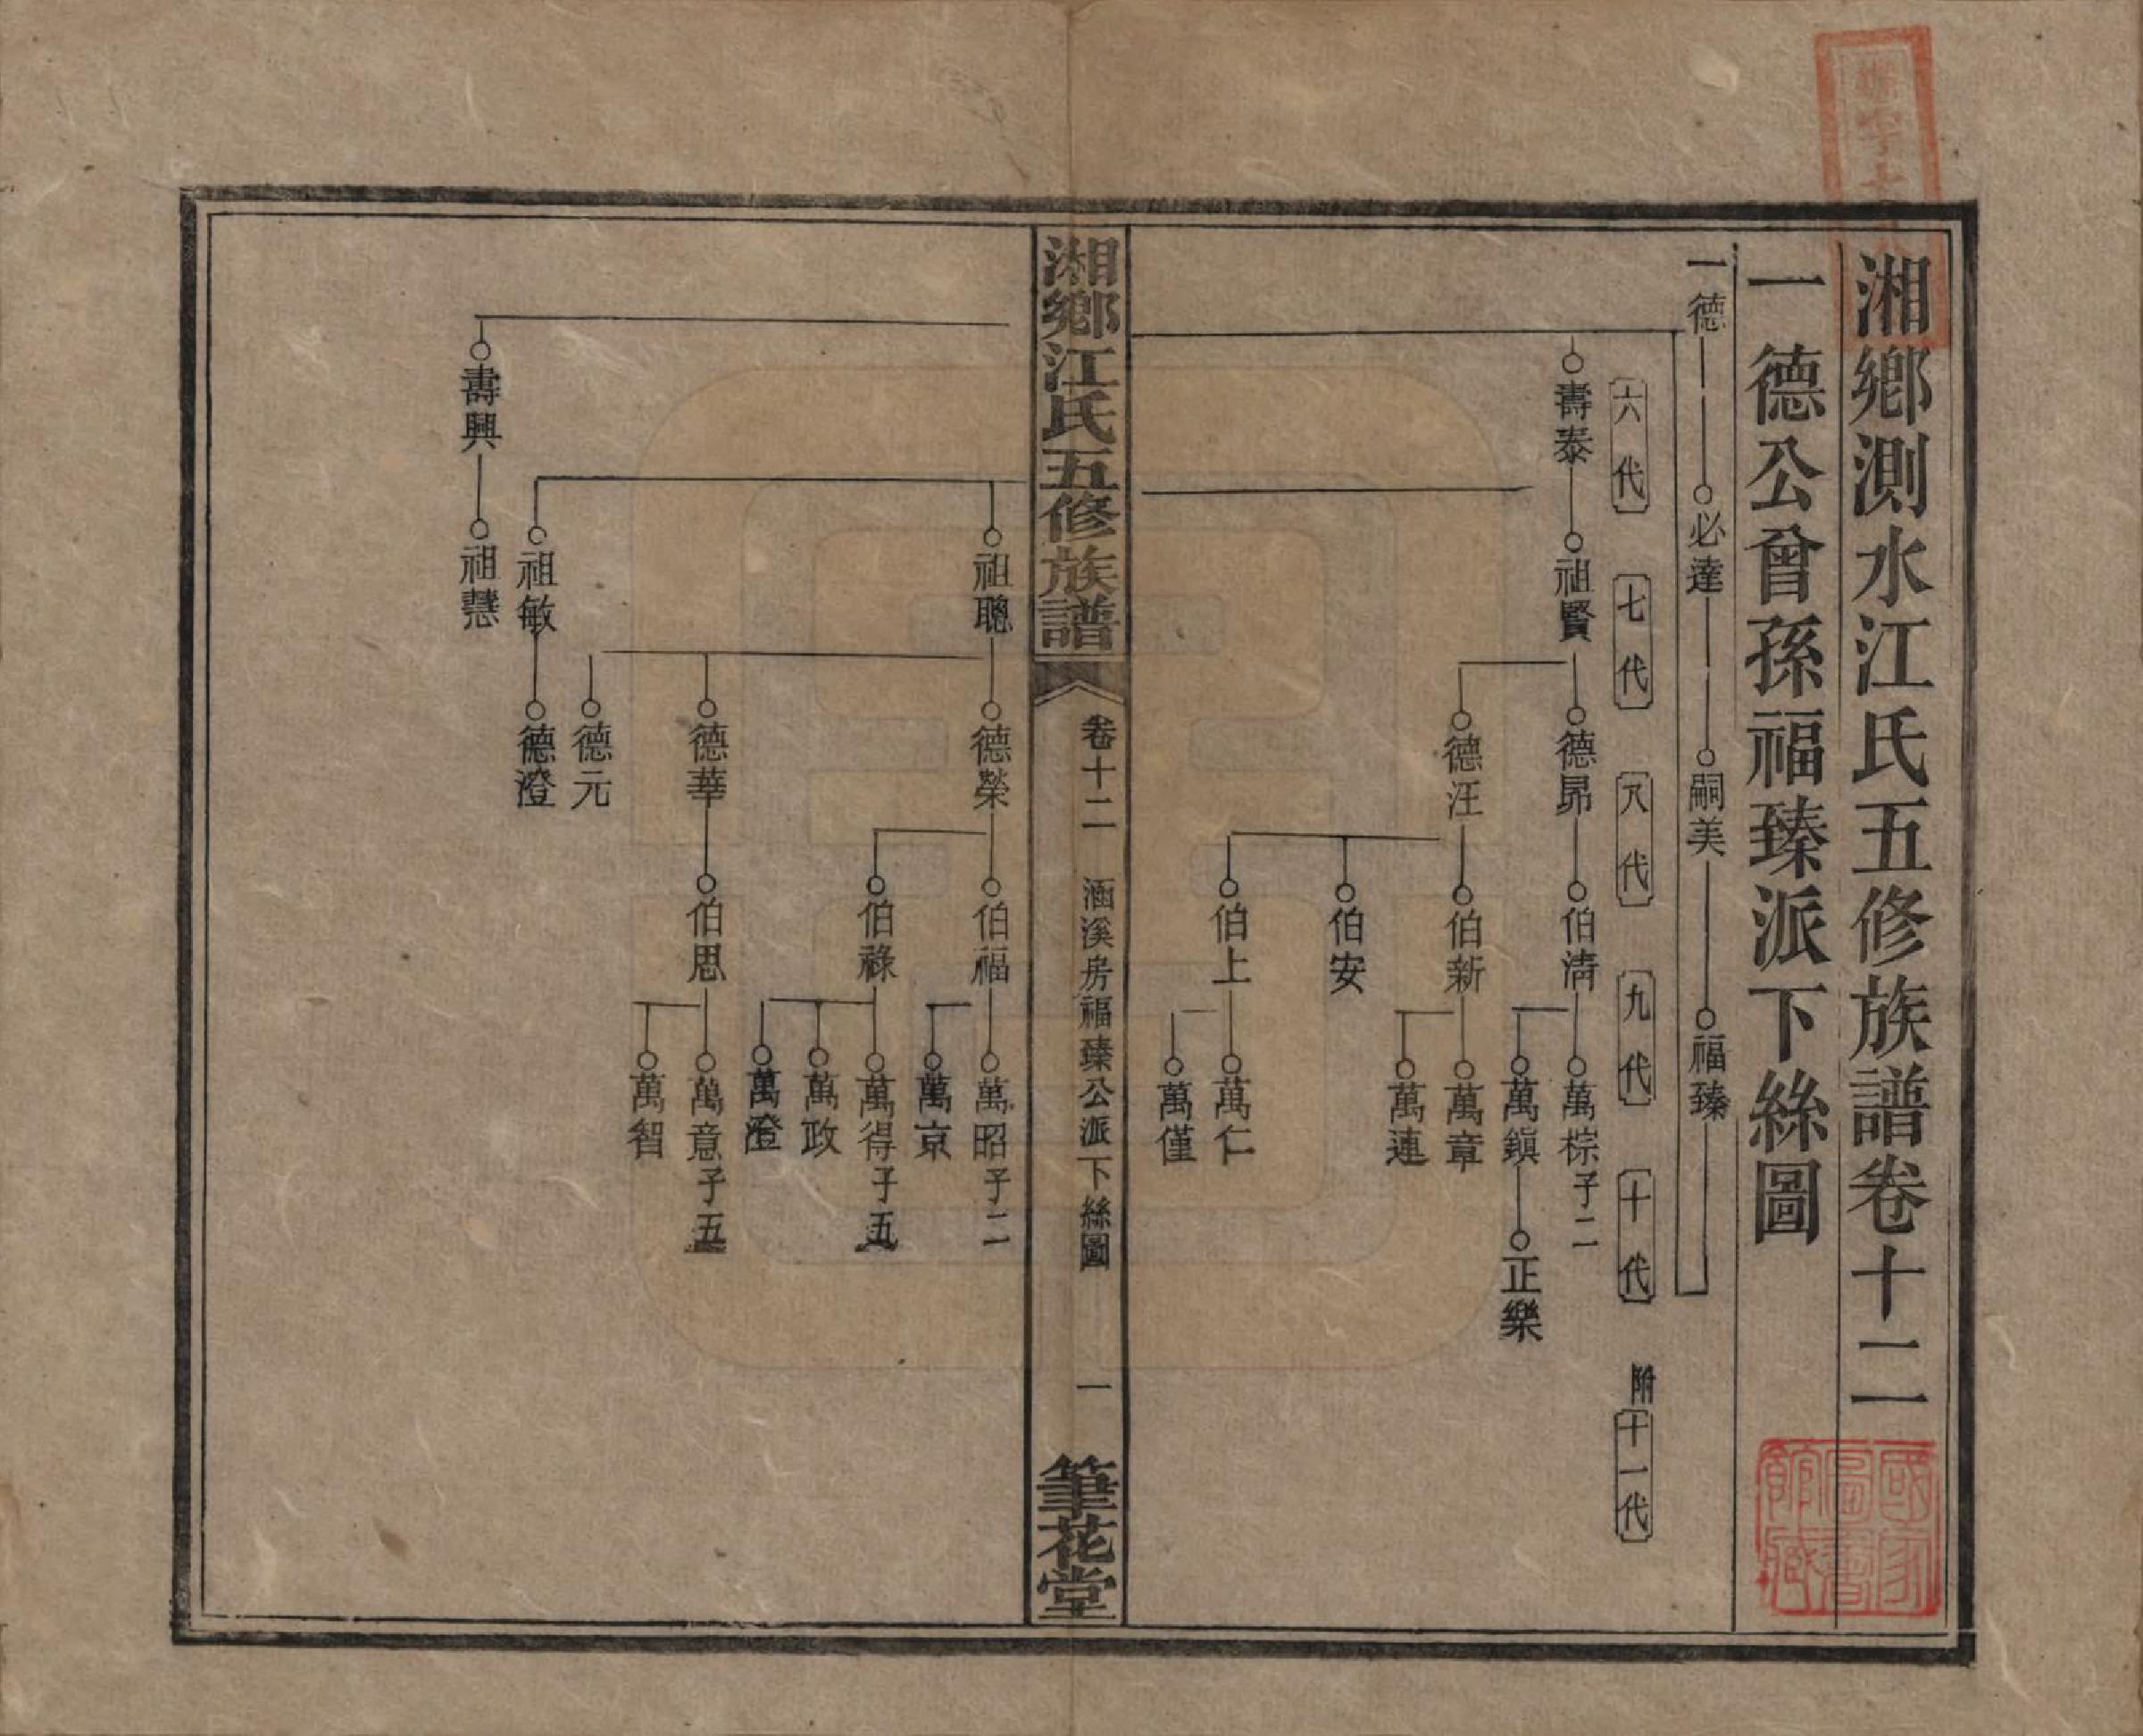 湘鄉測水江氏五修族譜卷十二
一德公曾孫福臻派下絲圖
一德 必達 嗣美 福臻
六代 七代 八代 九代 十代 附十一代
壽泰 祖賢 德昴 伯清 萬棕子二
萬鎭 正樂
德汪 伯新 萬章
萬連
伯安
伯上 萬仁
萬僅
湘鄉江氏五修族譜 卷十二 涵溪房福臻公派下絲圖 一 筆花堂
祖聰 德榮 伯福 萬昭子二
萬京
伯祿 萬得子五
萬政
萬澄
德華 伯思 萬意子五
萬智
德元
祖敏 德澄
壽興 祖慧
國家圖書館藏